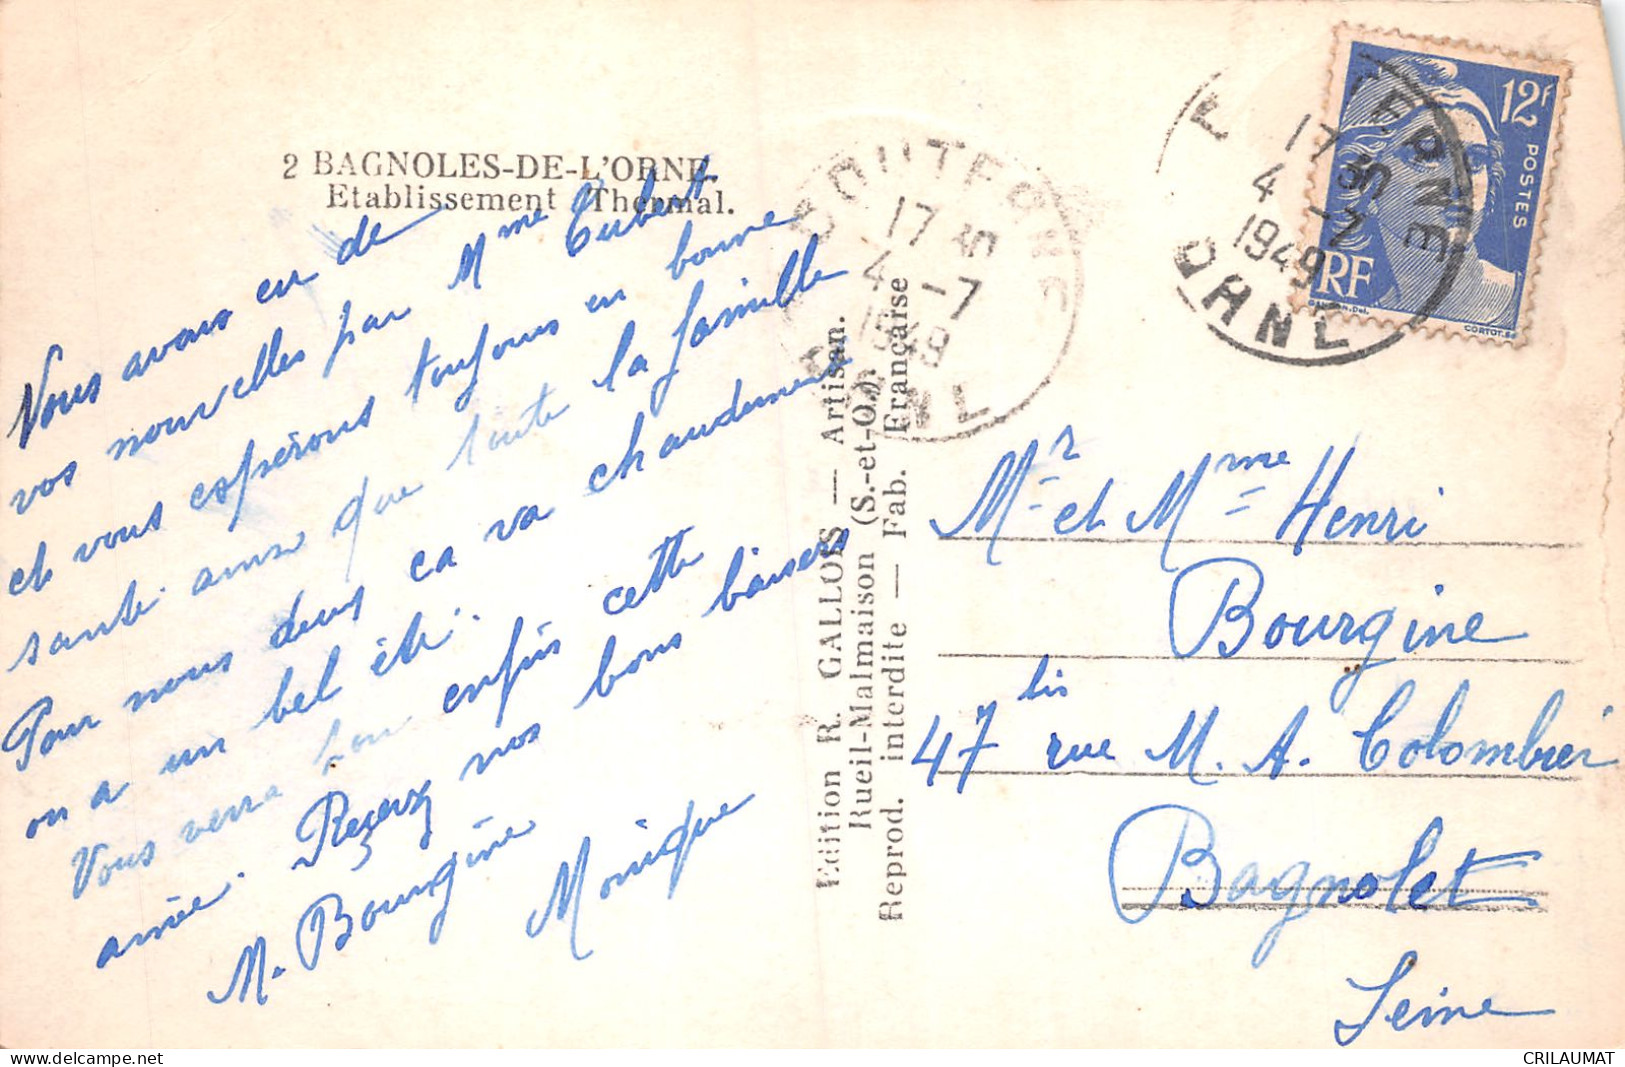 2 BAGNOLES-DE-L'ORNE
Etablissement Thermal.
Vous avons eu de
vos nouvelles par Mme Cubert
et vous espérons toujours en bonne
santé ainsi que toute la famille
Pour nous deux ca va chaudement
on a un bel été.
Vous verra bon enfuis cette
année. Recevez nos bons baisers
M. Bourgine Monique
Edition R. GALLOIS — Artisan.
Rueil-Malmaison (S.-et-O.).
Reprod. interdite — Fab. Française
17 35
4 -7
1949
ORNE
12F
POSTES
RF
CORTOT.Sc
17 35
4 -7
1949
ORNE
Mr et Mme Henri
Bourgine
47 bis rue M. A. Colombier
Bagnolet
Seine
CRILAUMAT